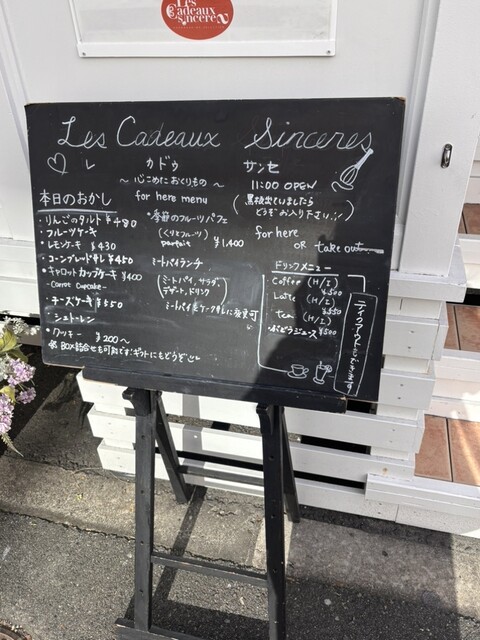 Les
Cadeaux
sincères
Les Cadeaux Sinceres
カドゥ サンセ
～心こめたおくりもの～
11:00 OPEN
for here menu
どうぞお入りください！
本日のおかし
・りんごのタルト ¥480
・フルーツケーキ
・レモンケーキ ¥430
・コーンブレッド
¥450
・キャロットカップケーキ ¥400
-Carrot Cupcake-
・チーズケーキ ¥550
・シュトーレン
・クッキー ¥200～
※BOX詰合せも可能です！ギフトにもどうぞ
・季節のフルーツパフェ
parfait ¥1,400
ミートパイランチ
(ミートパイ、サラダ、
デザート、ドリンク)
ミートパイをケークサレに変更可
for here
OR take out
ドリンクメニュー
Coffee (H/I)
¥500
Latte (H/I)
¥550
tea (H/I)
¥500
・ぶどうジュース ¥500
テイクアウトもできます